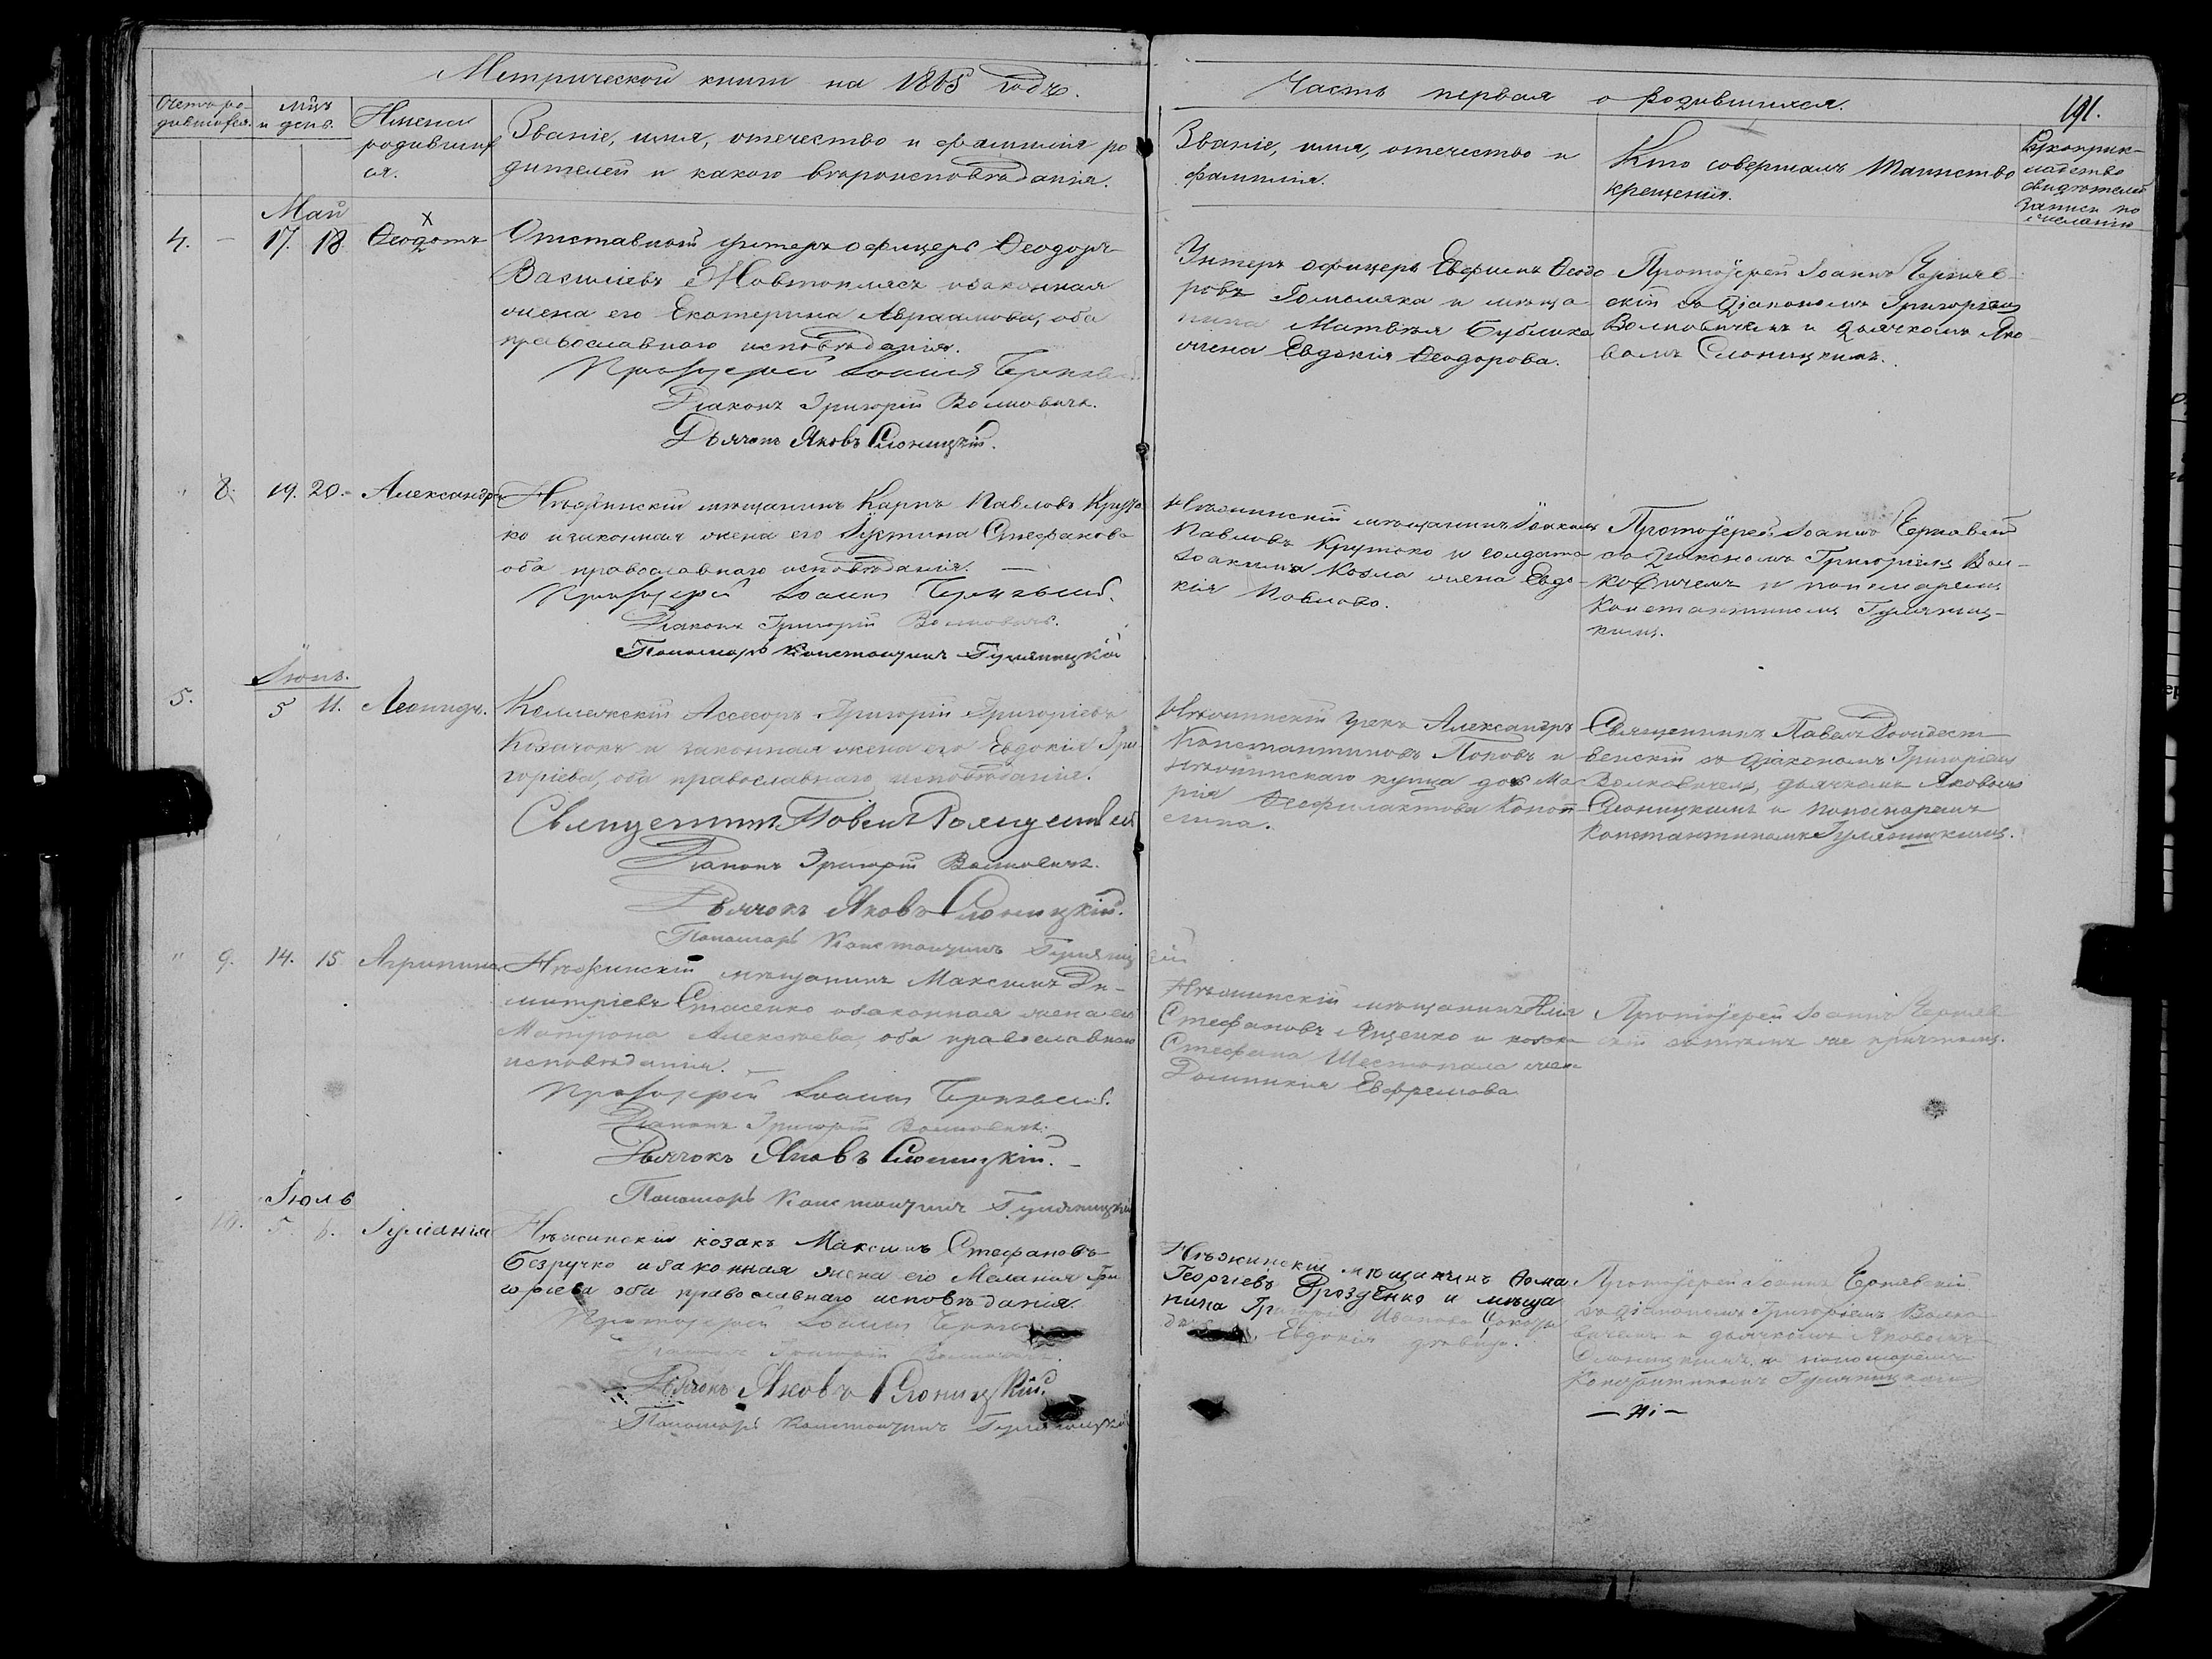 Метрической книги на 1865 годъ.
Часть первая о родившихся.
191.
Счетъ ро-
дившихся.
м͠цъ
и день.
Имена
родивших
ся.
Званіе, имя, отечество и фамилія ро
дителей и какого вѣроисповѣданія.
Званіе, имя, отечество и
фамилія.
Кто совершалъ таинство
крещенія.
Рукоприк-
ладство
свидѣтелей
записи по
желанію
Май
4. – 17. 18 Ѳеодотъ
Отставной унтеръ офицеръ Ѳеодоръ
Василіевъ и законная
жена его Екатерина Авраамова, оба
православнаго исповѣданія.
Протоіерей Іоаннъ Чернявскій
Діаконъ Григорій Волковичъ.
Дьячокъ Яковъ Слоницкій.
Унтеръ офицеръ Евфимъ Ѳеодо
ровъ и мѣща
нина Матвѣя Бублика
жена Евдокія Ѳеодорова.
Протоіерей Іоаннъ Чернявс
кій съ діакономъ Григоріемъ
Волковичемъ и дьячкомъ Яко
вомъ Слоницкимъ.
" 8. 19. 20. Александръ
Нѣжинскій мѣщанинъ Карпъ Павловъ Крутъ
ко и законная жена его Іустина Стефанова
оба православнаго исповѣданія. —
Протоіерей Іоаннъ Чернявскій.
Діаконъ Григорій Волковичъ.
Пономарь Константинъ Гуляницкій
Нѣжинскій мѣщанинъ Іоакимъ
Павловъ Крутько и солдата
Іоакима Козла жена Евдо-
кія Павлова.
Протоіерей Іоаннъ Чернявскій
съ діакономъ Григоріемъ Вол-
ковичемъ и пономаремъ
Константиномъ Гуляниц-
кимъ.
Іюнь.
5. 5 11. Леонидъ.
Коллежскій Ассесоръ Григорій Григоріевъ
Козачокъ и законная жена его Евдокія Гри
горіева, оба православнаго исповѣданія.
Священникъ Павелъ Рождественскій
Діаконъ Григорій Волковичъ.
Дьячокъ Яковъ Слоницкій.
Пономарь Константинъ Гуляницкій
Нѣжинскій грекъ Александръ
Константиновъ Поповъ и
Нѣжинскаго купца дочь Ма
рія Ѳеофилактова
Священникъ Павелъ Рождест
венскій съ діакономъ Григоріемъ
Волковичемъ, дьячкомъ Яковомъ
Слоницкимъ и пономаремъ
Константиномъ Гуляницкимъ.
" 9. 14. 15 Агрипина
Нѣжинскій мѣщанинъ Максимъ Ди-
митріевъ Стасенко и законная жена его
Матрона Алексѣева, оба православнаго
исповѣданія. —
Протоіерей Іоаннъ Чернявскій.
Діаконъ Григорій Волковичъ.
Дьячокъ Яковъ Слоницкій. –
Пономарь Константинъ Гуляницкій
Нѣжинскій мѣщанинъ Илія
Стефановъ Яценко и козака
Стефана Шестопала жена
Домникія Евфремова
Протоіерей Іоаннъ Чернявс
кій съ тѣмъ же причтомъ.
Іюль
10. 5. 6. Іуліанія
Нѣжинскій козакъ Максимъ Стефановъ
Безручко и законная жена его Меланія Гри
горіева оба православнаго исповѣданія.
Протоіерей Іоаннъ
Діаконъ Григорій Волковичъ.
Дьячокъ Яковъ Слоницкій.
Пономарь Константинъ Гуляницкій
Нѣжинскій мѣщанинъ Ѳома
Георгіевъ Дрозденко и мѣща
нина Григорія Иванова
Евдокія дѣвица.
Протоіерей Іоаннъ Чернявскій
съ діакономъ Григоріемъ Волко
вичемъ и дьячкомъ Яковомъ
Слоницкимъ и пономаремъ
Константиномъ Гуляницкимъ